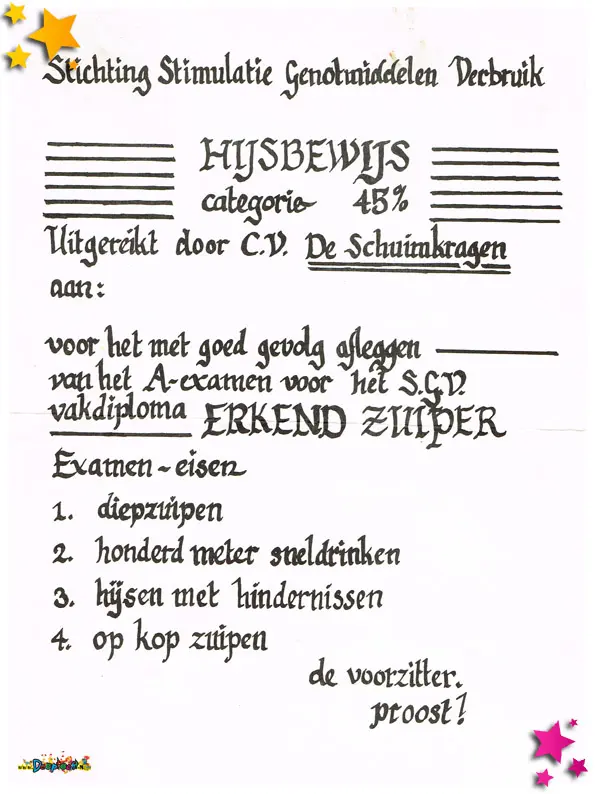 Stichting Stimulatie Genotmiddelen Verbruik
HIJSBEWIJS
categorie 45%
Uitgereikt door C.V. De Schuimkragen
aan:
voor het met goed gevolg afleggen
van het A-examen voor het S.G.V.
vakdiploma ERKEND ZUIPER
Examen-eisen
1. diepzuipen
2. honderd meter sneldrinken
3. hijsen met hindernissen
4. op kop zuipen
de voorzitter.
proost!